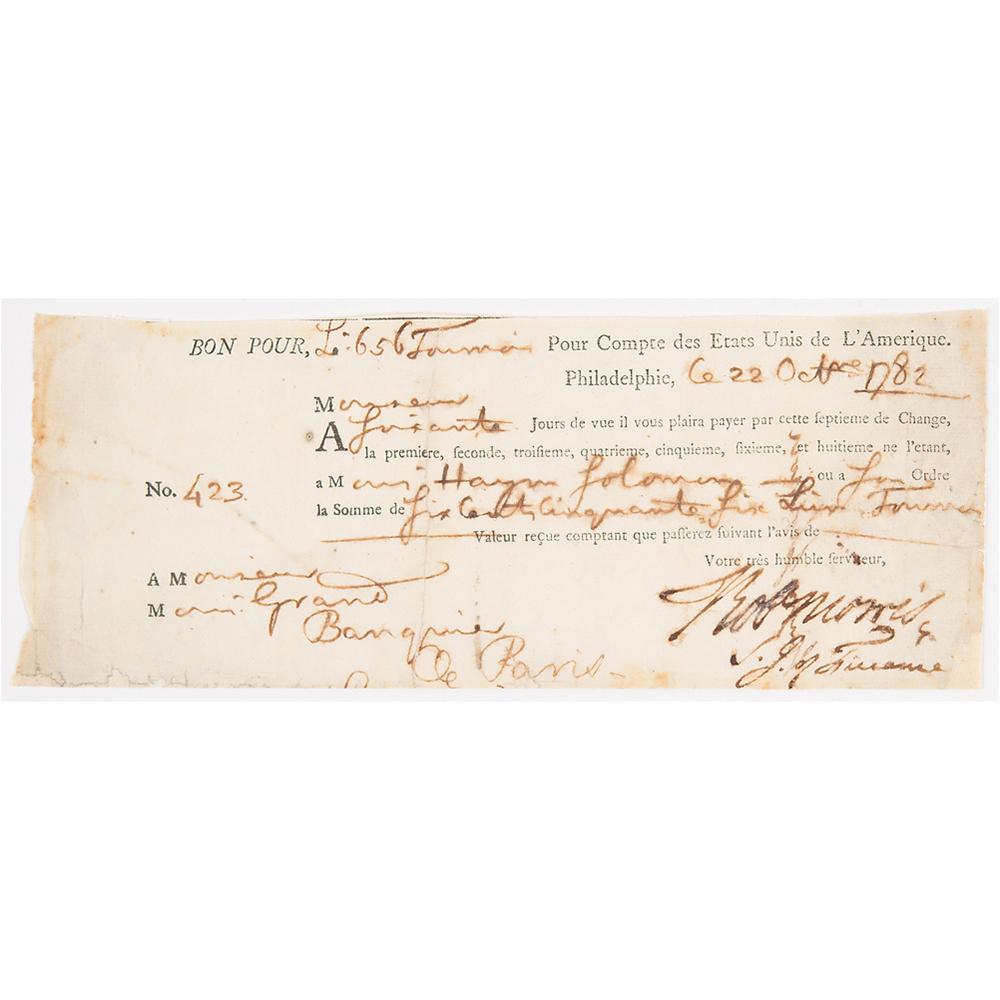 BON POUR, L. 656 Tournois Pour Compte des Etats Unis de L'Amerique.
Philadelphie, le 22 Octbre 1782
Monsieur
A soixante Jours de vue il vous plaira payer par cette ſeptieme de Change,
la premiere, ſeconde, troiſieme, quatrieme, cinquieme, ſixieme, et huitieme ne l'etant,
No. 423. a M Haym Solomon ou a Son Ordre
la Somme de Six Cents Cinquante Six Tournois
Valeur reçue comptant que paſſerez ſuivant l'avis de
Votre très humble ſerviteur,
A Monsieur
M Grand
Banquier
de Paris
Robt Morris
S. I. of Finance